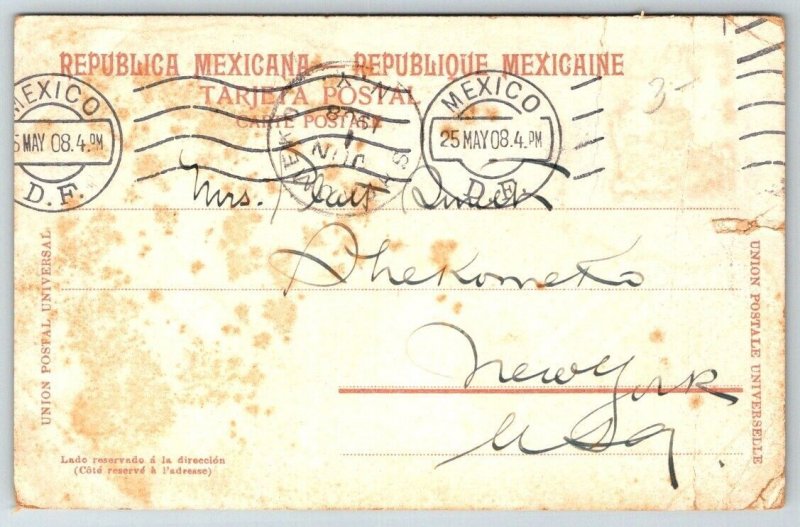 REPUBLICA MEXICANA — REPUBLIQUE MEXICAINE
TARJETA POSTAL
CARTE POSTALE
MEXICO
25 MAY 08.4.PM
D.F.
MEXICO
25 MAY 08.4.PM
D.F.
3-
Mrs.
Shekomeko
New York
USA
UNION POSTAL UNIVERSAL
UNION POSTALE UNIVERSELLE
Lado reservado á la dirección
(Côté reservé à l'adresse)